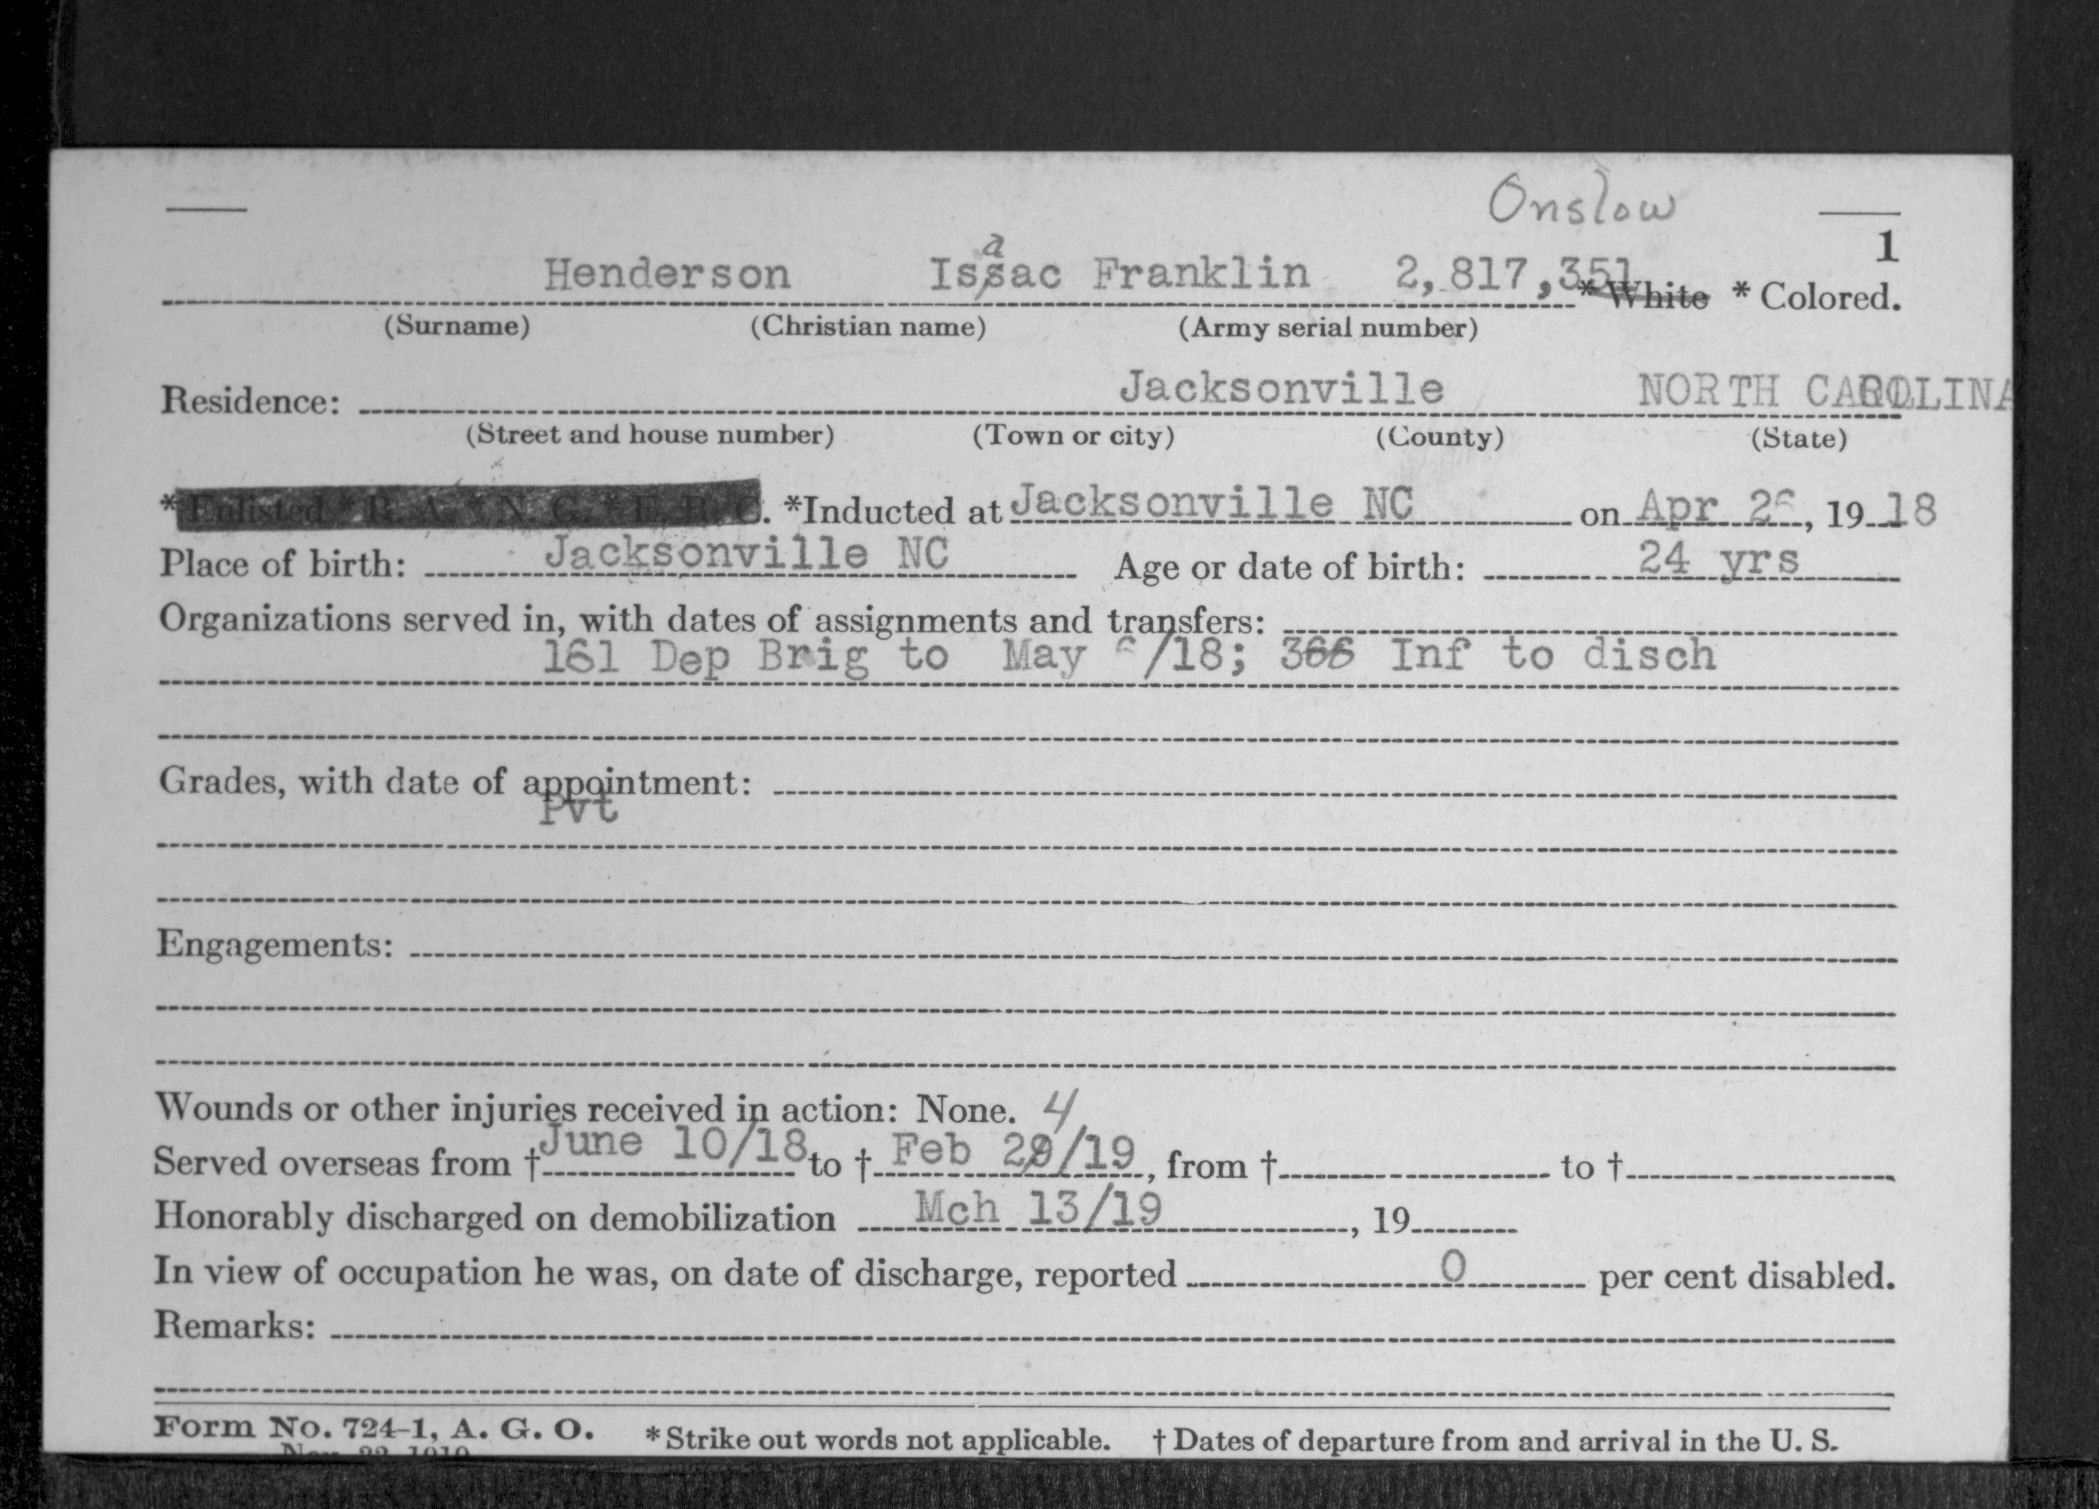 Onslow
1
Henderson Isaac Franklin 2,817,351 * White * Colored.
(Surname) (Christian name) (Army serial number)
Jacksonville NORTH CAROLINA
Residence:
(Street and house number) (Town or city) (County) (State)
*Enlisted * R. A. * N. G. * E. R. C. *Inducted at Jacksonville NC on Apr 26, 1918
Place of birth: Jacksonville NC Age or date of birth: 24 yrs
Organizations served in, with dates of assignments and transfers:
161 Dep Brig to May /18; 366 Inf to disch
Grades, with date of appointment:
Pvt
Engagements:
Wounds or other injuries received in action: None. 4
Served overseas from † June 10/18 to † Feb 2/19, from † to †
Honorably discharged on demobilization Mch 13/19, 19
In view of occupation he was, on date of discharge, reported 0 per cent disabled.
Remarks:
Form No. 724-1, A. G. O. * Strike out words not applicable. † Dates of departure from and arrival in the U. S.
Nov. 22, 1919